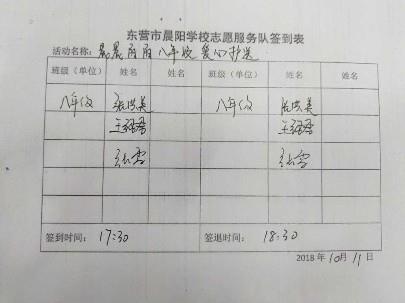 东营市晨阳学校志愿服务队签到表
活动名称：八年级爱心护送
班级（单位） 姓名 姓名 班级（单位） 姓名 姓名
八年级 张 八年级 张
王 王
张雪 张雪
签到时间：17:30 签退时间：18:30
2018 年 10 月 11 日